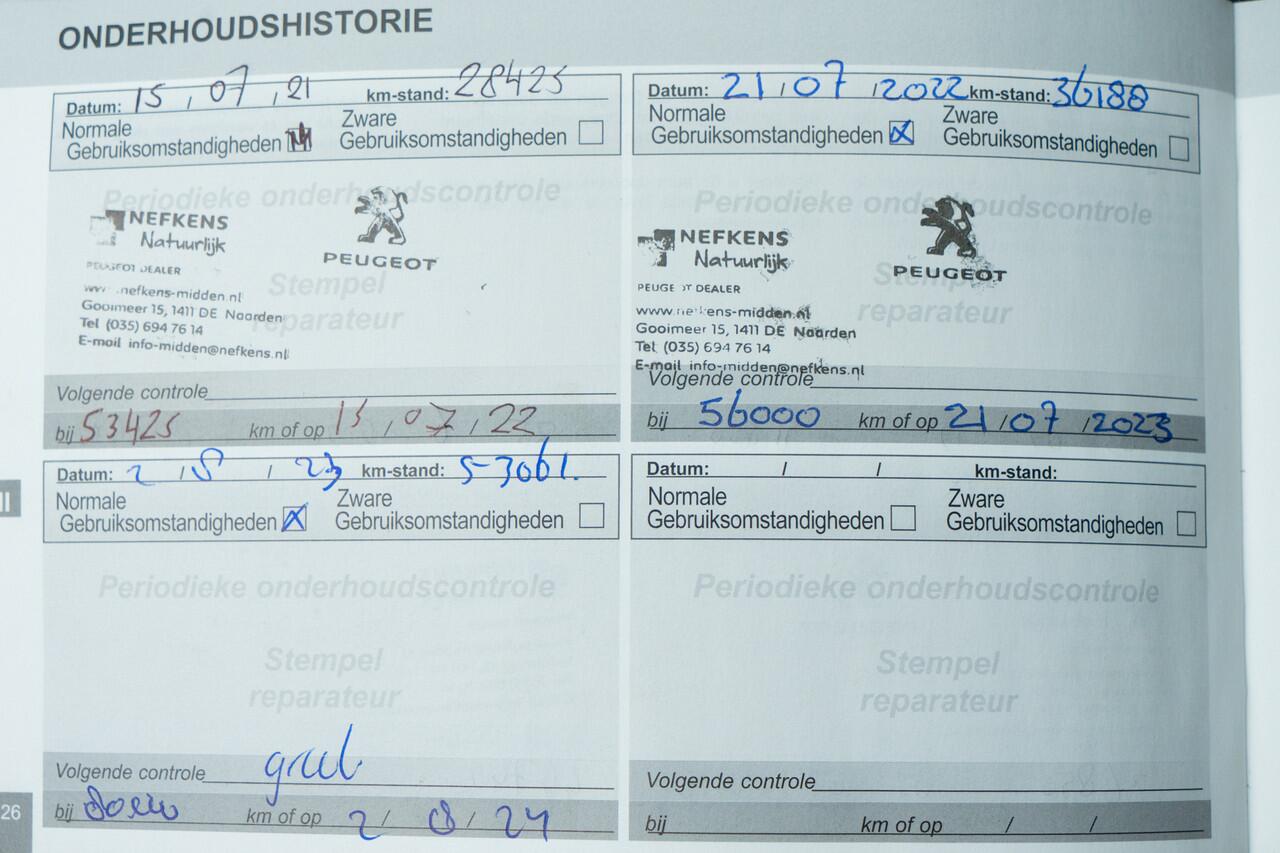 ONDERHOUDSHISTORIE
Datum: 15 / 07 / 21 km-stand: 28425
Normale Gebruiksomstandigheden
Zware Gebruiksomstandigheden
Periodieke onderhoudscontrole
NEFKENS
Natuurlijk
PEUGEOT
PEUGEOT DEALER
www.nefkens-midden.nl
Stempel
Gooimeer 15, 1411 DE Naarden
reparateur
Tel (035) 694 76 14
E-mail info-midden@nefkens.nl
Volgende controle
bij 53425 km of op 15 / 07 / 22
Datum: 21 / 07 / 2022 km-stand: 36188
Normale Gebruiksomstandigheden X
Zware Gebruiksomstandigheden
Periodieke onderhoudscontrole
NEFKENS
Natuurlijk
PEUGEOT
PEUGEOT DEALER
Stempel
www.nefkens-midden.nl
reparateur
Gooimeer 15, 1411 DE Naarden
Tel (035) 694 76 14
E-mail info-midden@nefkens.nl
Volgende controle
bij 56000 km of op 21 / 07 / 2023
Datum: 2 / / 23 km-stand: 53061.
Normale Gebruiksomstandigheden X
Zware Gebruiksomstandigheden
Periodieke onderhoudscontrole
Stempel
reparateur
Volgende controle
bij km of op 2 / 8 / 24
Datum: / / km-stand:
Normale Gebruiksomstandigheden
Zware Gebruiksomstandigheden
Periodieke onderhoudscontrole
Stempel
reparateur
Volgende controle
bij km of op / /
26